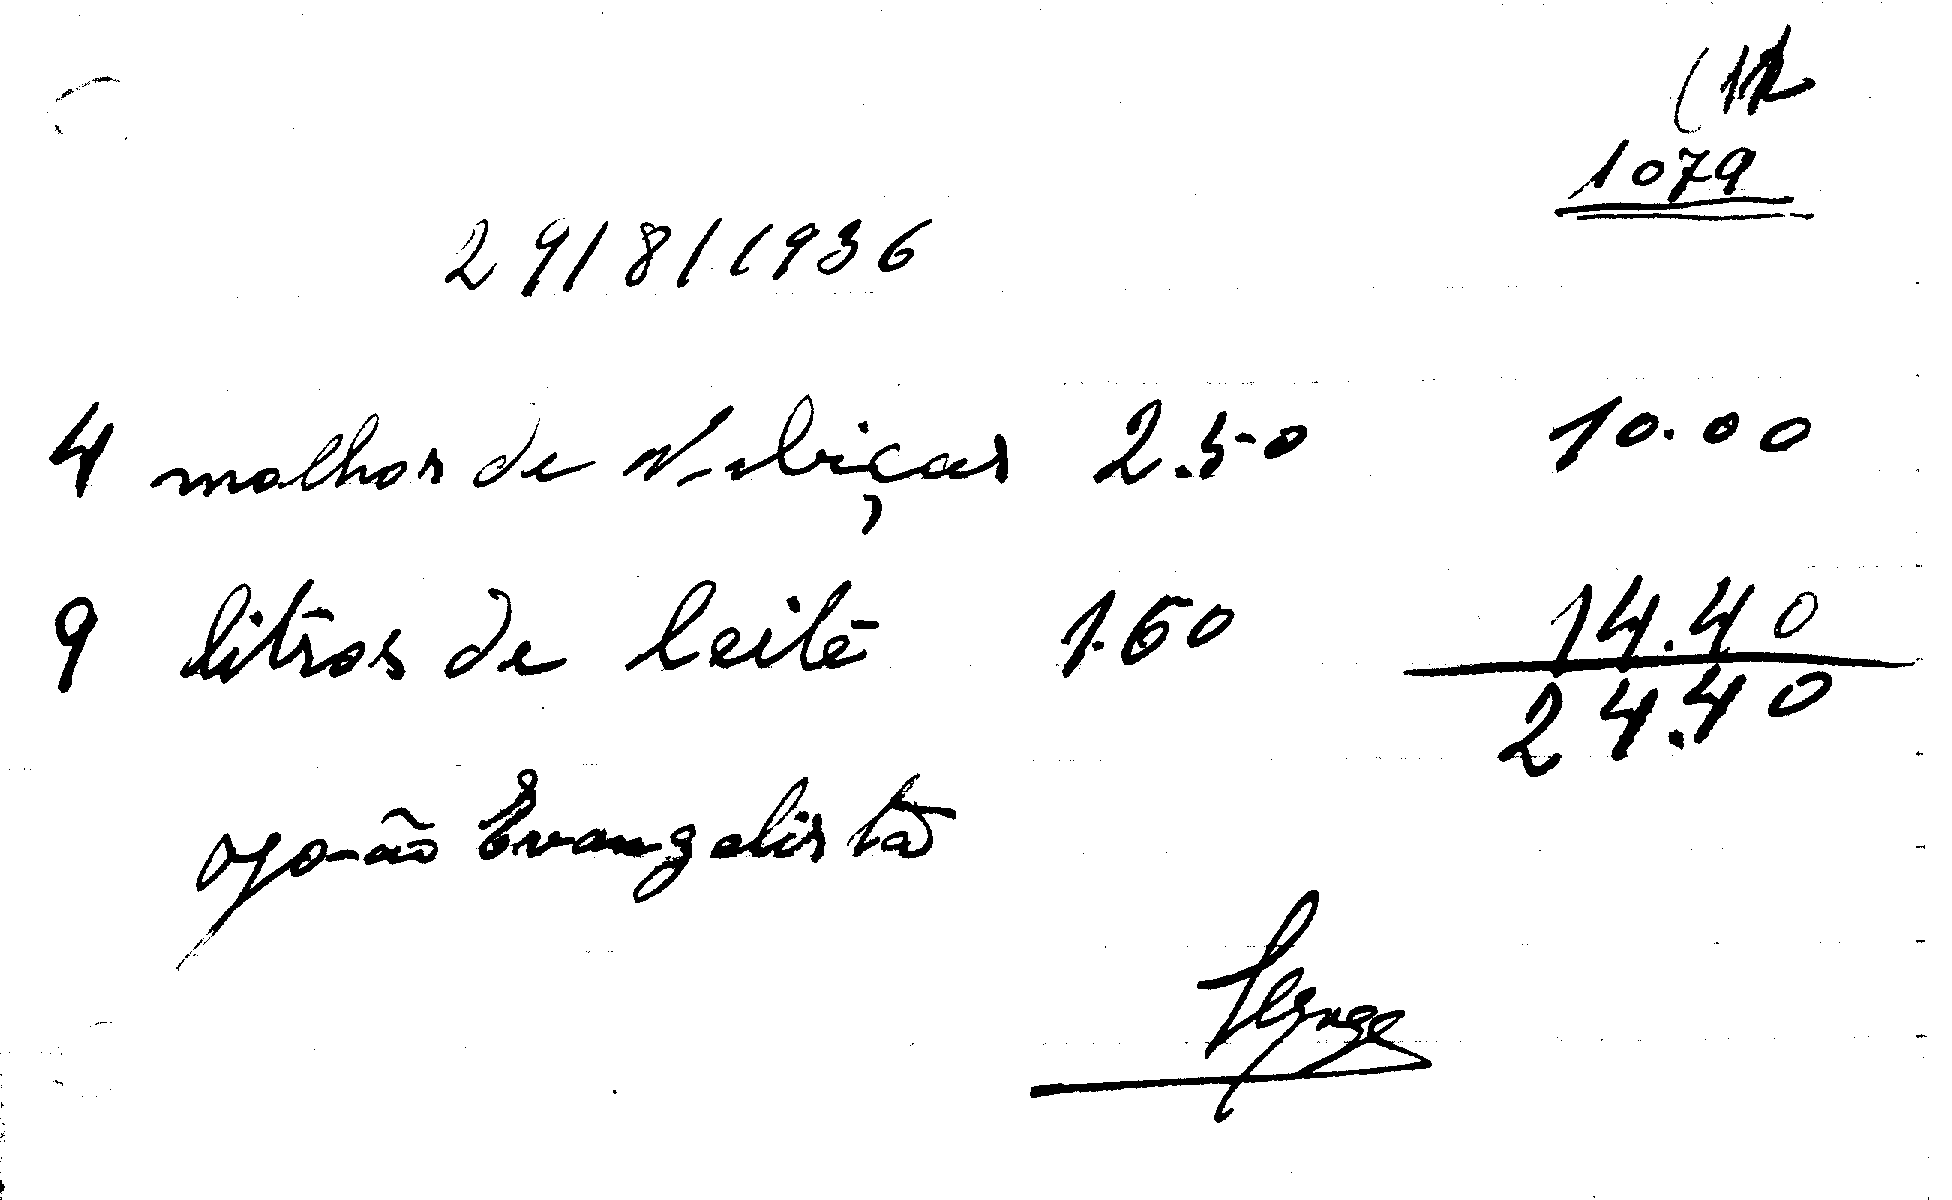 1079
29/8/1936
4 molhos de Nabiças 2.50 10.00
9 litros de leite 1.60 14.40
24.40
João Evangelista